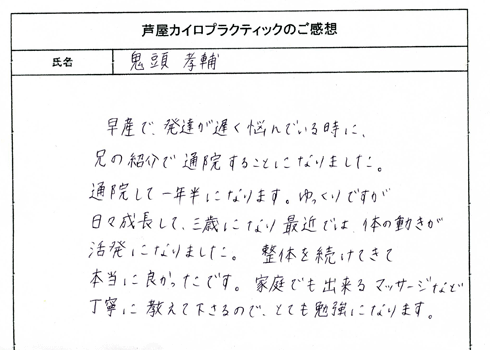 芦屋カイロプラクティックのご感想
氏名
鬼頭 孝輔
早産で、発達が遅く悩んでいる時に、
兄の紹介で通院することになりました。
通院して一年半になります。ゆっくりですが
日々成長して、三歳になり最近では、体の動きが
活発になりました。 整体を続けてきて
本当に良かったです。家庭でも出来るマッサージなど
丁寧に教えて下さるので、とても勉強になります。